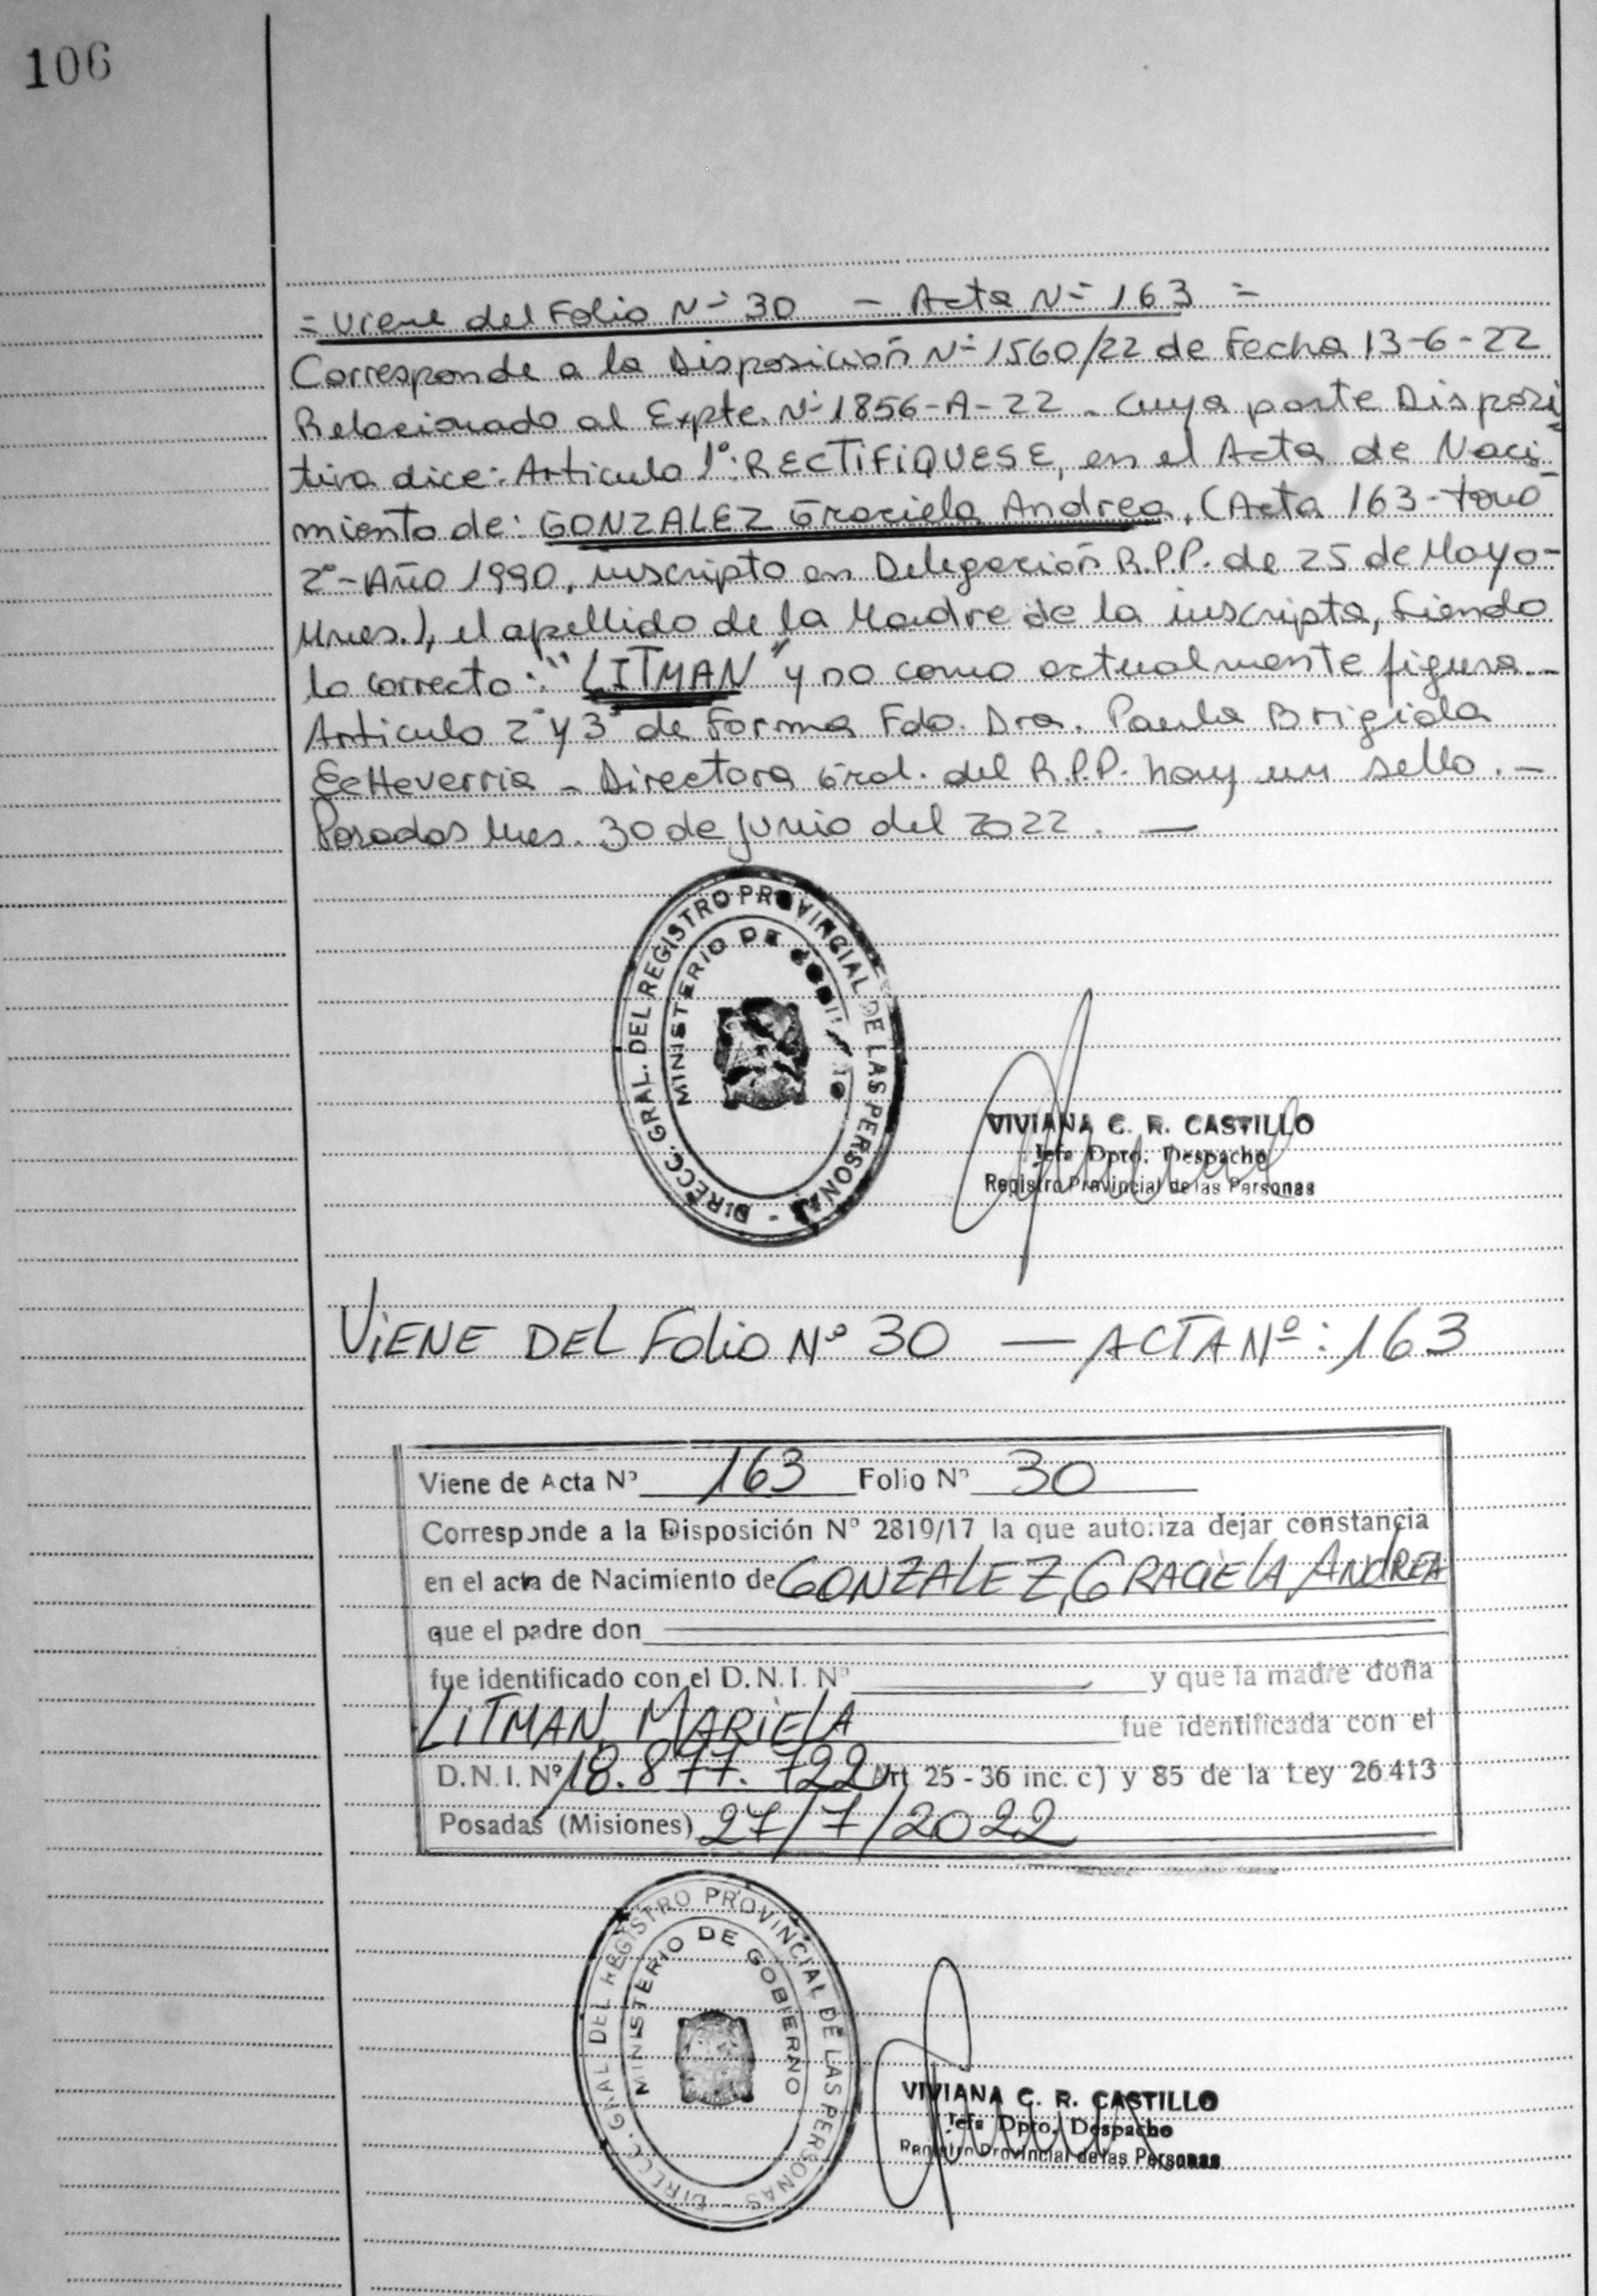 106
= Viene del Folio Nº 30 - Acta Nº 163 =
Corresponde a la Disposición Nº 1560/22 de Fecha 13-6-22
Relacionado al Expte. Nº 1856-A-22 - cuya parte Disposi
tiva dice: Articulo 1º: RECTIFIQUESE, en el Acta de Naci-
miento de: GONZALEZ Graciela Andrea, (Acta 163 - tomo
2º - Año 1990, inscripto en Delegación R.P.P. de 25 de Mayo -
Mnes.), el apellido de la Madre de la inscripta, Siendo
lo correcto: "LITMAN" y no como actualmente figura.-
Articulo 2º y 3º de Forma Fdo. Dra. Paula Brigida
EcHeverria - Directora Gral. del R.P.P. hay un sello.-
Posadas Mnes. 30 de junio del 2022. —
DIRECC. GRAL. DEL REGISTRO PROVINCIAL DE LAS PERSONAS -
MINISTERIO DE GOBIERNO
VIVIANA C. R. CASTILLO
Jefa Dpto. Despacho
Registro Provincial de las Personas
ViENE DEL FoliO Nº 30 — ACTA Nº: 163
Viene de Acta Nº 163 Folio Nº 30
Corresponde a la Disposición Nº 2819/17 la que autoriza dejar constancia
en el acta de Nacimiento de GONZALEZ, GRACIELA ANDREA
que el padre don
fue identificado con el D.N.I. Nº y que la madre doña
LiTMAN, MARIELA fue identificada con el
D.N.I. Nº 18.877.722 Art 25 - 36 inc. c) y 85 de la Ley 26.413
Posadas (Misiones) 27/7/2022
DIRECC. GRAL DEL REGISTRO PROVINCIAL DE LAS PERSONAS -
MINISTERIO DE GOBIERNO
VIVIANA C. R. CASTILLO
Jefa Dpto. Despacho
Registro Provincial de las Personas